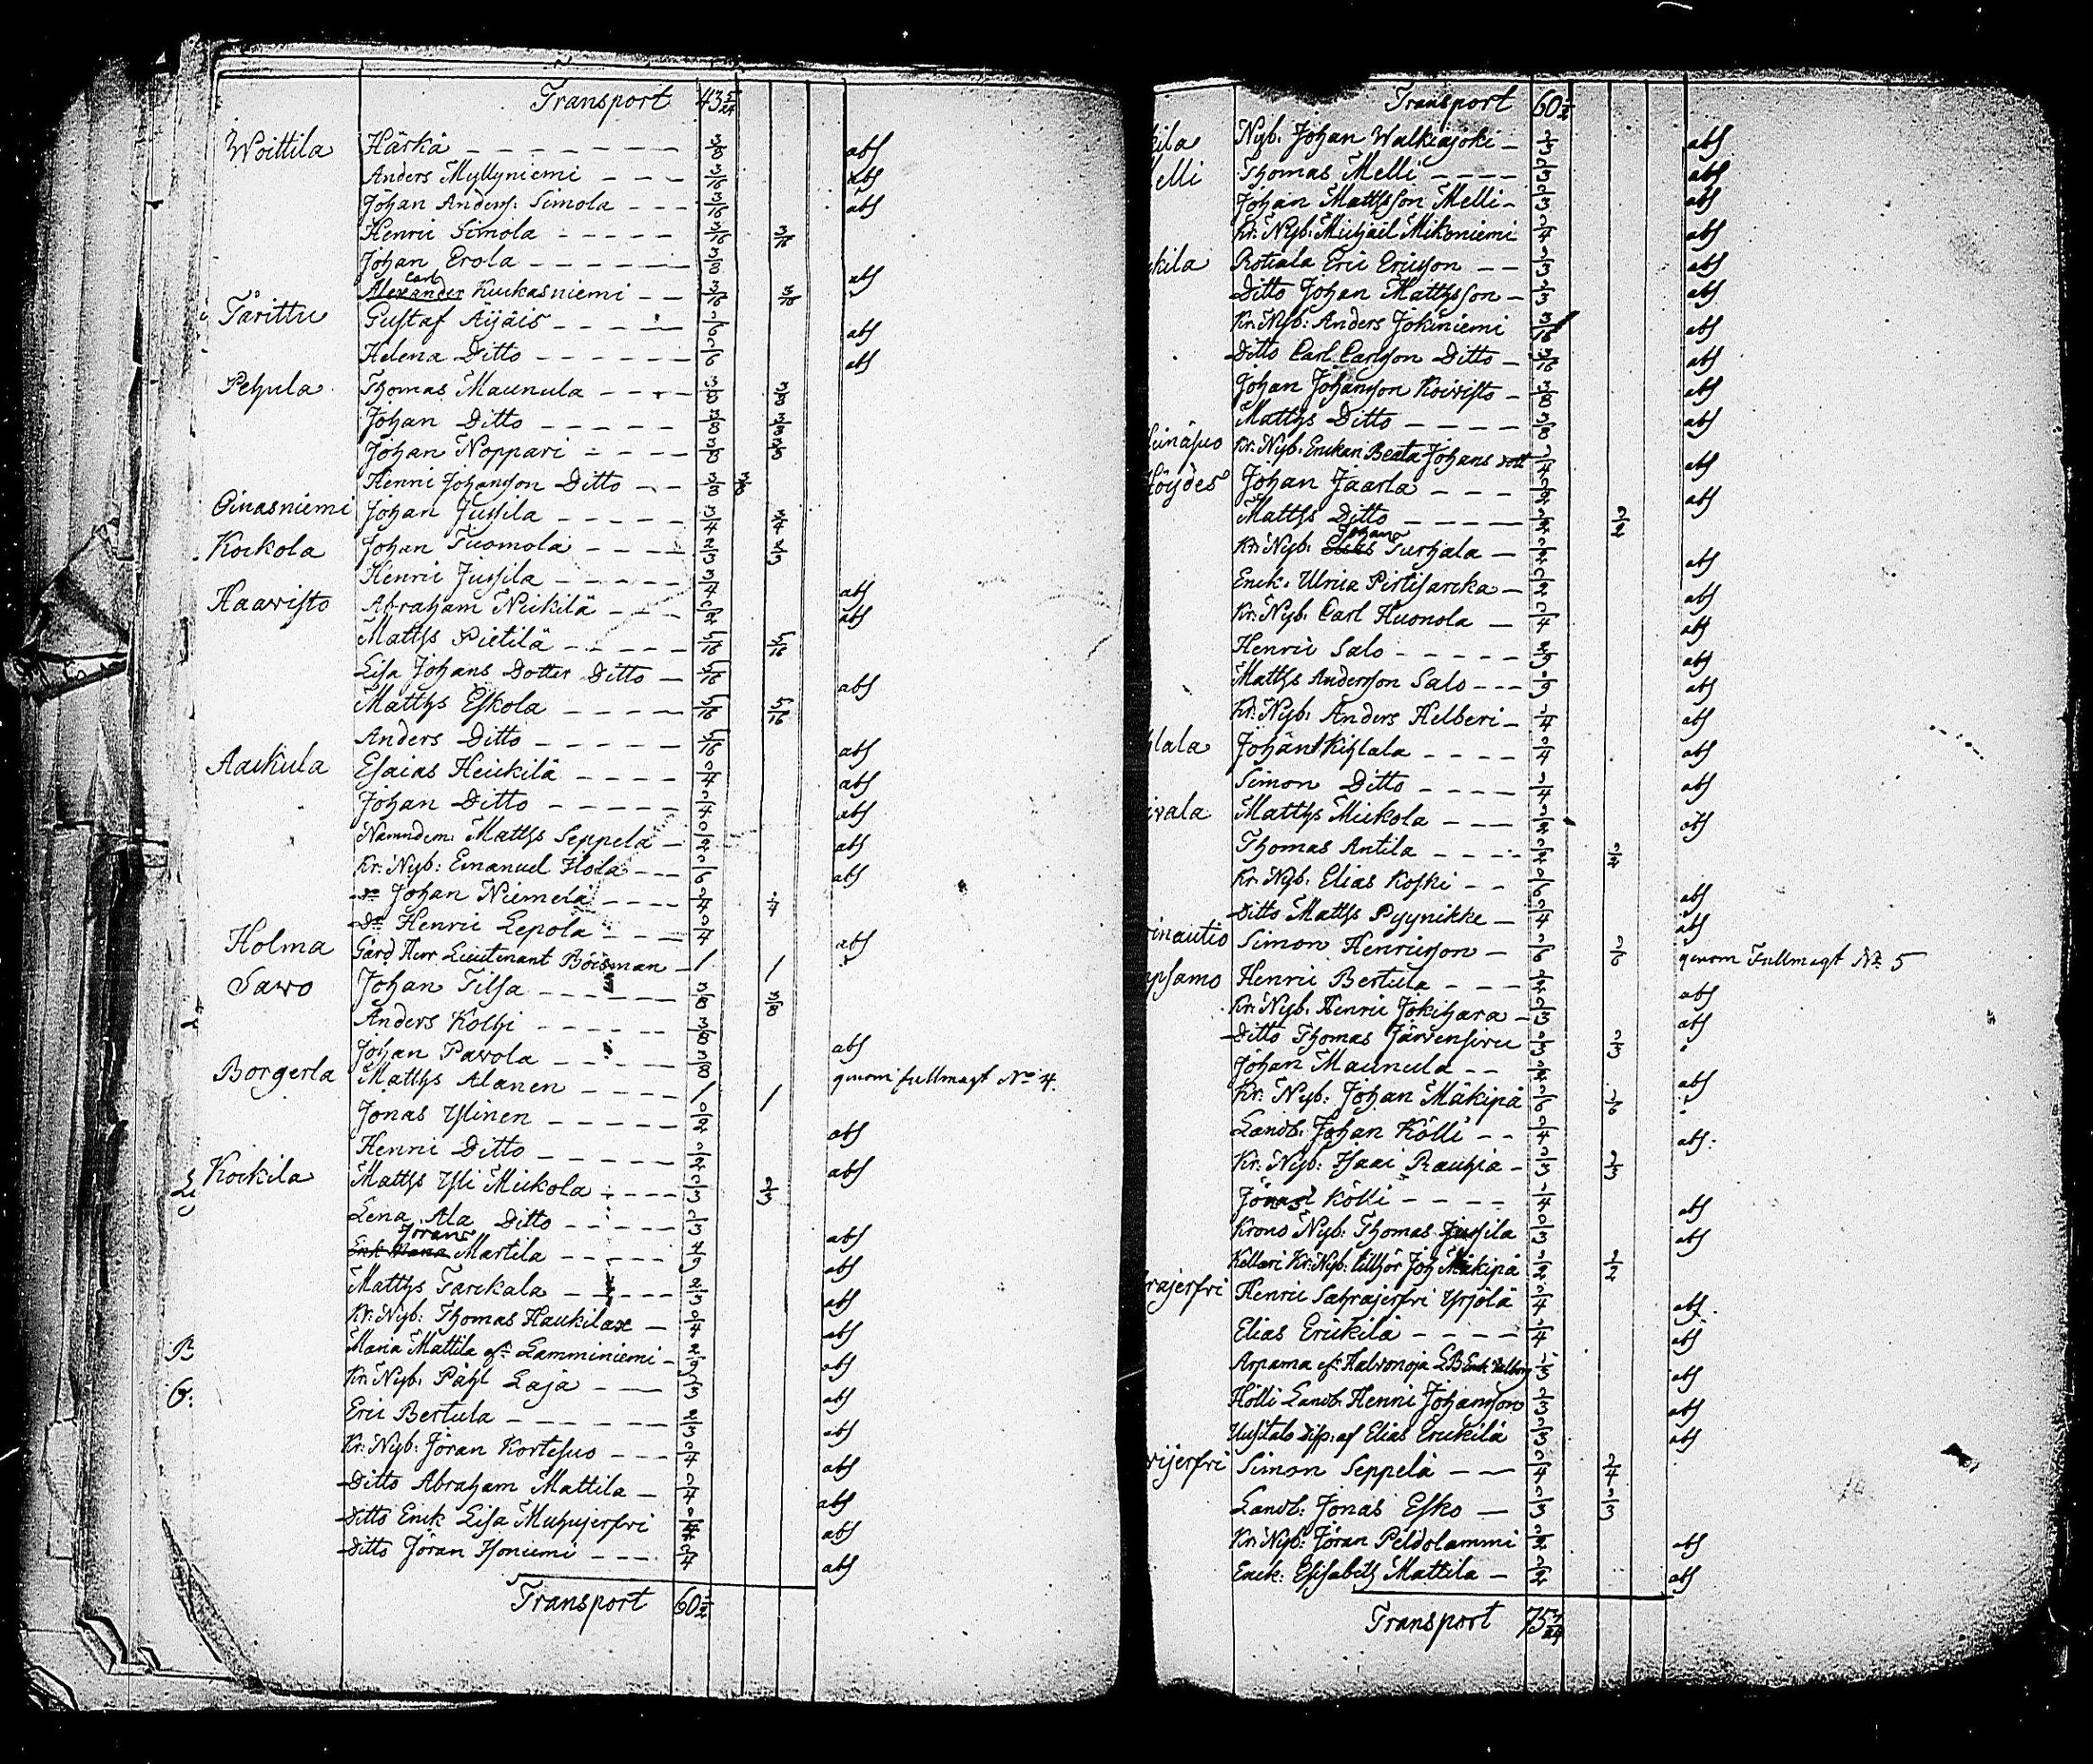 Transport 43 5/24
Woittila Härkä 3/8 abs
Anders Myllyniemi 3/16 abs
Johan Anders. Simola 3/16 abs
Henric Simola 3/16 3/16
Johan Erola 3/8 abs
Carl
Alexander Kuckasniemi 3/16 3/16
Tårittu Gustaf Äijäis 1/6 abs
Helena Ditto 1/6 abs
Pehula Thomas Maunula 3/8 3/8
Johan Ditto 3/8 3/8
Johan Noppari 3/8 3/8
Henric Johansson Ditto 3/8 3/8
Oinasniemi Johan Jussila 3/4 3/4
Kockola Johan Tuomola 2/3 2/3
Henric Jussila 3/4 abs
Haawisto Abraham Nickilä 1/2 abs
Matths Pietilä 5/16 5/16
Lisa Johans Dotter Ditto 5/16 abs
Matths Eskola 5/16 5/16
Anders Ditto 5/16 abs
Aackula Esaias Heickilä 1/4 abs
Johan Ditto 1/4 abs
Nämndem: Matths Seppelä 1/2 abs
Kr: Nyb: Emanuel Hola 1/6 abs
Do Johan Niemelä 1/4 1/4
Do Henric Lepola 1/4 abs
Holma Gård Herr Lieutenant Böisman 1 1
Sawo Johan Tilsa 3/8 3/8
Anders Kolhi 3/8 abs
Johan Pawola 3/8 genom fullmagt No 4.
Borgerla Matths Alanen 1 1
Jonas Ylinen 1/2 abs
Henric Ditto 1/2 abs
Kockila Matths Yli Mickola 1/3 1/3
Lena Ala Ditto 1/3 abs
Jöran
Martila 4/9 abs
Matths Tarckala 2/3 abs
Kr: Nyb: Thomas Haukilax 1/4 abs
Maria Mattila af Lamminiemi 2/9 abs
Kr: Nyb: Påhl Laja 1/3 abs
Eric Bertula 2/3 abs
Kr: Nyb: Jöran Kortesuo 1/4 abs
Ditto Abraham Mattila 1/4 abs
Ditto Enck Lisa Muhujerfvi 1/4 abs
Ditto Jöran Isoniemi 1/4 abs
Transport 60 1/2
Transport 60 1/2
kila Nyb. Johan Walkiajoki 1/3 abs
elli Thomas Melli 1/3 abs
Johan Mattsson Melli 1/3 abs
Kr: Nyb: Michail Mikoniemi 1/4 abs
kila Rotiala Eric Ericsson 1/3 abs
Ditto Johan Mathsson 1/3 abs
Kr: Nyb: Anders Jokiniemi 3/16 abs
Ditto Carl Carlsson Ditto 3/16 abs
Johan Johansson Koiwisto 3/8 abs
Matths Ditto 3/8 abs
einäsuo Kr: Nyb. Enckan Beata Johans dott 1/4 abs
Höijdes Johan Jaarla 1/2 abs
Matths Ditto 1/2 1/2
Johans
Kr: Nyb. Turhala 1/2 abs
Enck: Ulrica Pirtisarcka 1/2 abs
Kr: Nyb. Carl Huonola 1/4 abs
Henric Salo 2/9 abs
Matths Andersson Salo 1/9 abs
Kr: Nyb. Anders Helberi 1/4 abs
hlala Johan Kihlala 1/4 abs
Simon Ditto 1/4 abs
ivala Matths Mickola 1/2 abs
Thomas Antila 1/4 1/4
Kr: Nyb. Elias Koski 1/6 abs
Ditto Matths Pyynikke 1/4 abs
inautio Simon Henricsson 1/6 1/6 genom Fullmagt No 5
psamo Henric Bertula 1/2 abs
Kr: Nyb. Henric Jokihara 1/3 abs
Ditto Thomas Järvensivu 1/3 1/3
Johan Maunula 1/2 abs
Kr: Nyb: Johan Mäkipä 1/6 1/6
Landb. Johan Kölli 1/4 abs.
Kr: Nyb: Isaac Rauhia 1/3 1/3
Jonas Kölli 1/4 abs
Krono Nyb: Thomas Jussila 1/3 abs
Kellari Kr: Nyb: tillhör Joh Mäkipä 1/2 1/2
rajerfvi Henric Sahrajerfvi Yrjölä 1/4 abs.
Elias Erickilä 1/4 abs
Arpama af Halvonoja LB Enck Walborg 1/3 abs
Hölli Landb. Henric Johansson 1/3 abs
Uusitalo Disp: af Elias Erickilä 1/3 abs
rijerfvi Simon Seppelä 1/4 1/4
Landb: Jonas Esko 1/3 1/3
Kr: Nyb: Jöran Peldolammi 1/2 abs
Enck: Elisabeth Mattila 1/2 abs
Transport 75